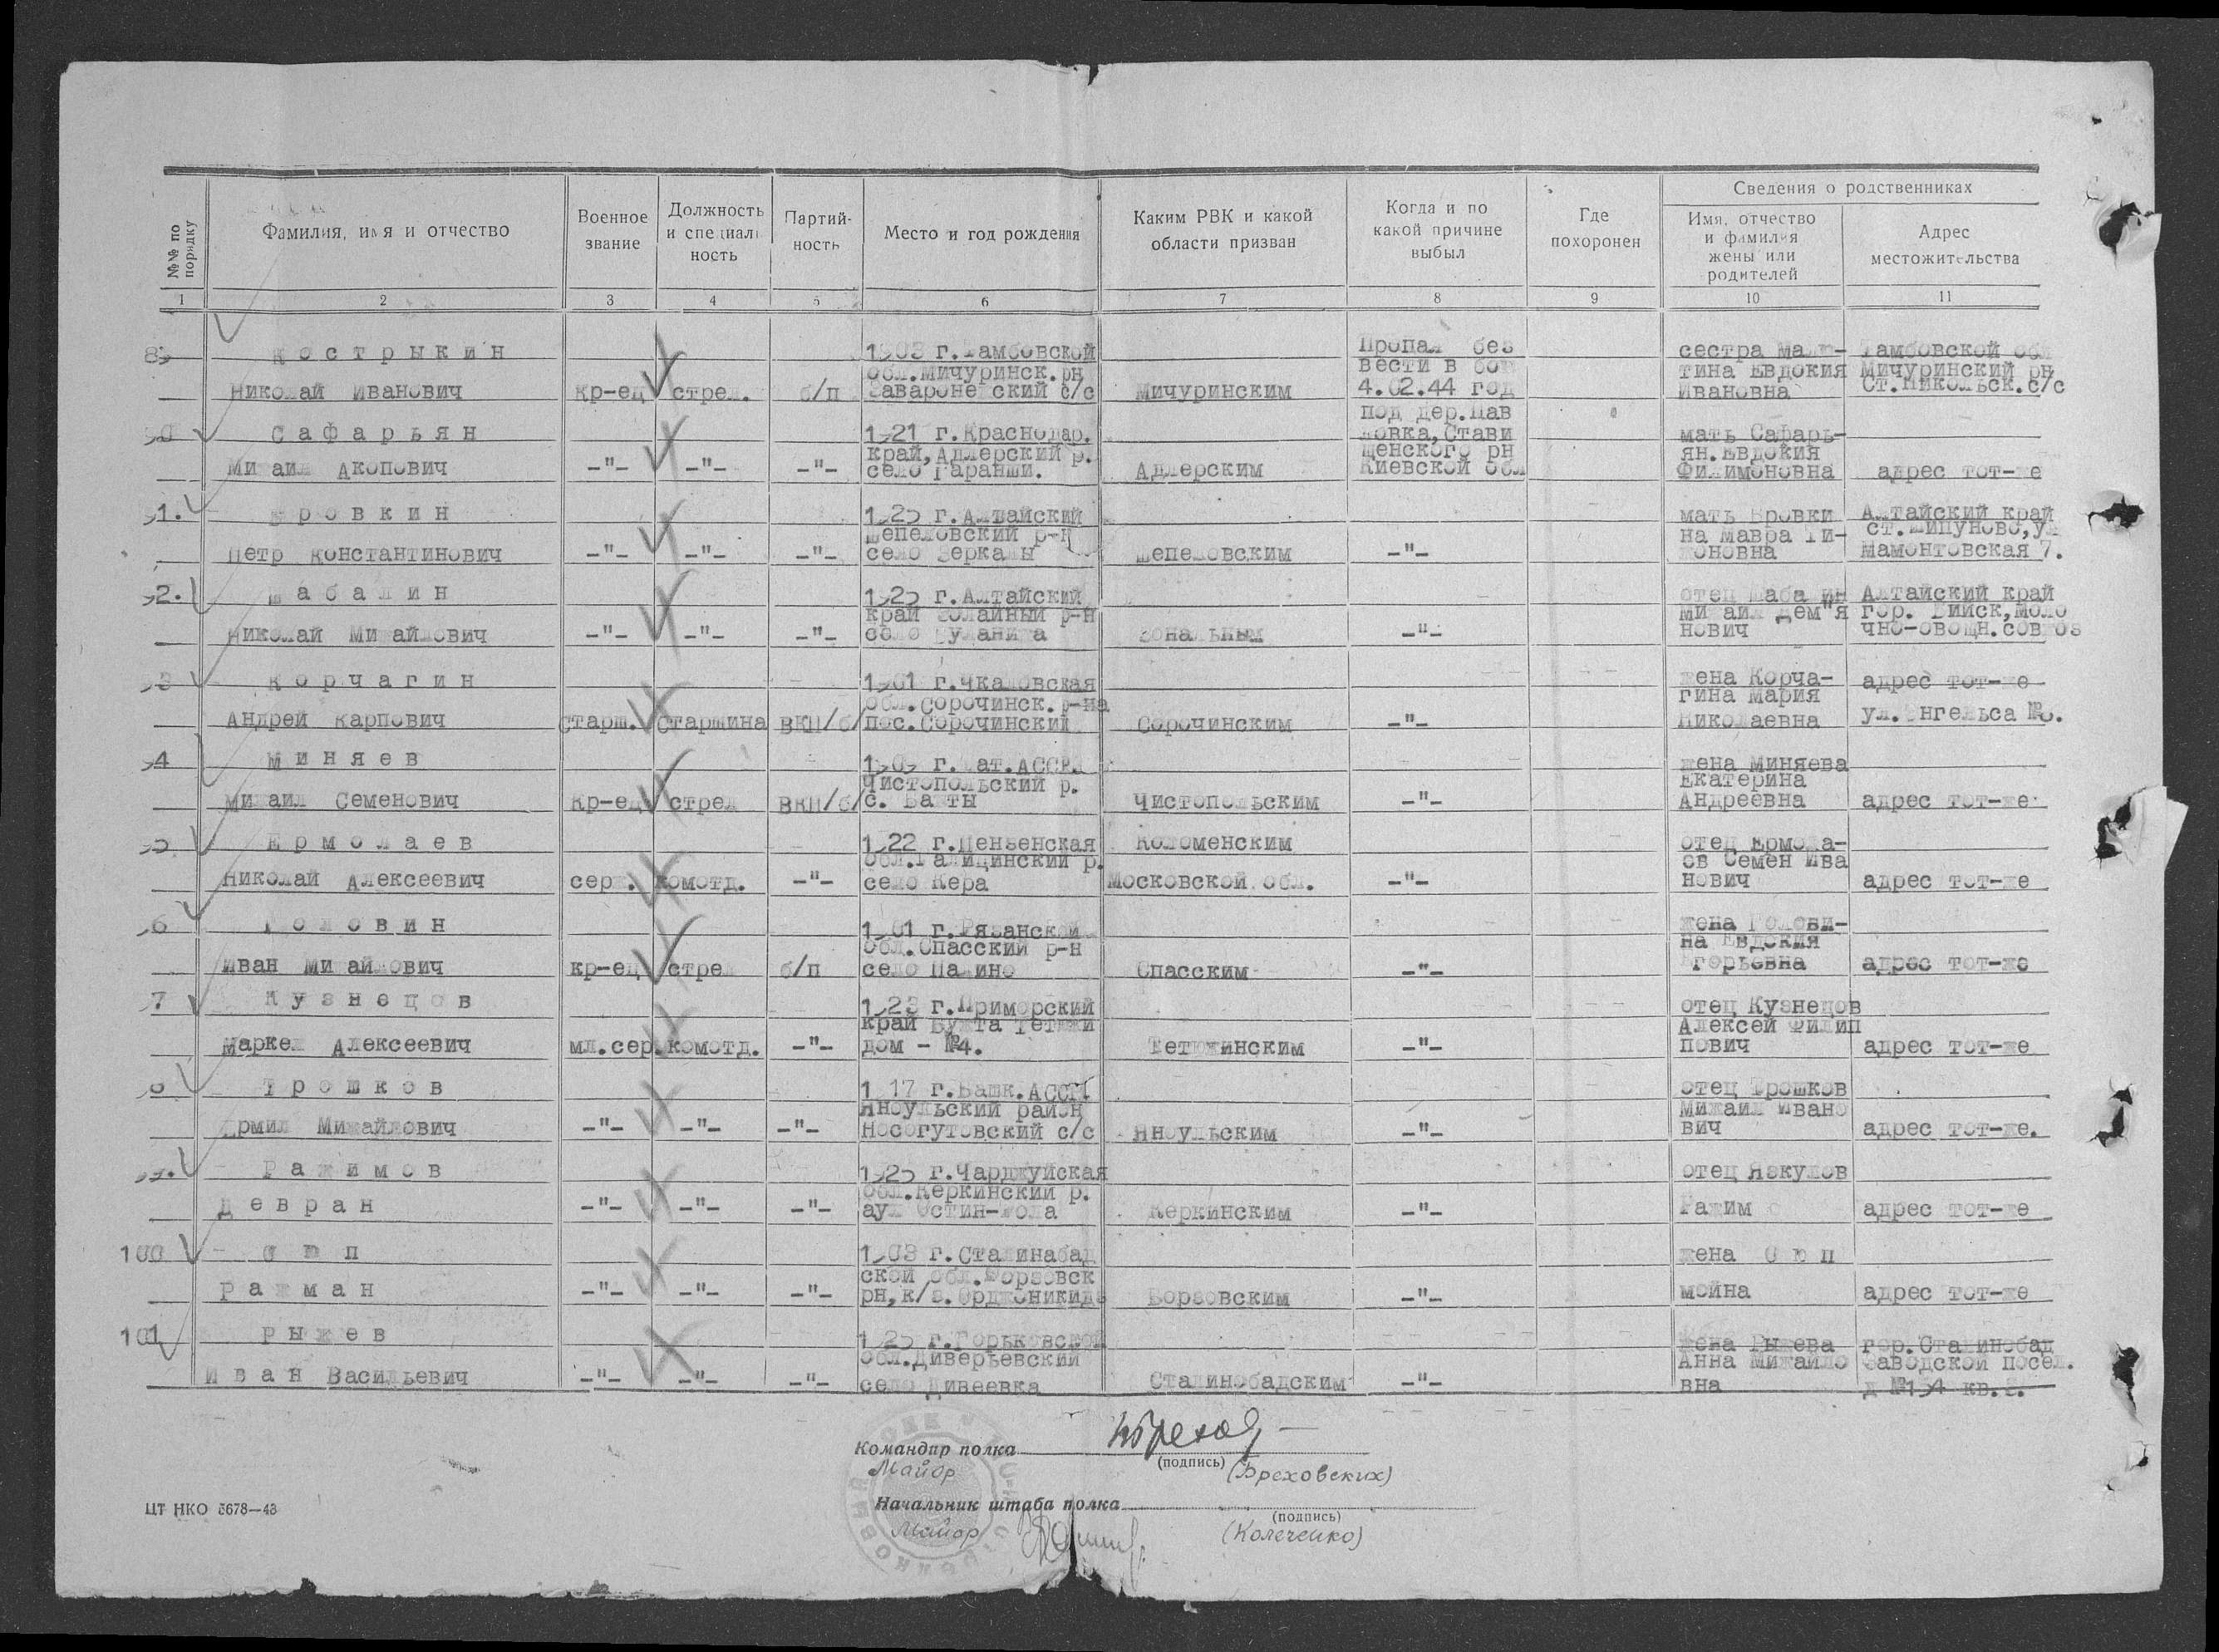 №№ по порядку
Фамилия, имя и отчество
Военное звание
Должность и специальность
Партийность
Место и год рождения
Каким РВК и какой области призван
Когда и по какой причине выбыл
Где похоронен
Сведения о родственниках
Имя, отчество и фамилия жены или родителей
Адрес местожительства
1 2 3 4 5 6 7 8 9 10 11
Кострыкин
1903 г.Тамбовской
Пропал без
сестра Малю-
Тамбовской обл
обл.Мичуринск.рн
вести в бою
тина Евдокия
Мичуринский рн
Николай Иванович
Кр-ец
стрел.
б/п
с/с
Мичуринским
4.02.44 год
Ивановна
Ст.Никольск.с/с
под дер.Пав
90
Сафарьян
1921 г.Краснодар.
ловка,Стави
мать Сафарь-
край,Адлерский р.
щенского рн
ян.Евдокия
Михаил Акопович
-"-
-"-
-"-
село Гаранши.
Адлерским
Киевской обл
Филимоновна
адрес тот-же
91.
Бровкин
1925 г.Алтайский
мать Бровки
Алтайский край
Шепеловский р-н
на Мавра Ти-
ст.Шипуново,ул
Петр Константинович
-"-
-"-
-"-
село Зеркалы
Шепеловским
-"-
хоновна
Мамонтовская 7.
92.
Шабалин
1925 г.Алтайский
отец Шабалин
Алтайский край
край Золайный р-н
Михаил Дем"я
гор. Бийск,Моло
Николай Михайлович
-"-
-"-
-"-
село Буланиха
Зональным
-"-
нович
чно-овощн.совхоз
93
Корчагин
1901 г.Чкаловская
жена Корча-
адрес тот-же
обл.Сорочинск.р-на
гина Мария
Андрей Карпович
старш.
Старшина
ВКП/б/
пос.Сорочинский
Сорочинским
-"-
Николаевна
ул.Энгельса
94
Миняев
1909 г.Тат.АССР.
жена Миняева
Чистопольский р.
Екатерина
Михаил Семенович
Кр-ец
стрел
ВКП/б/
с. Бахты
Чистопольским
-"-
Андреевна
адрес тот-же
95.
Ермолаев
1922 г.Пензенская
Коломенским
отец Ермола-
обл.Галицинский р.
ов Семен Ива
Николай Алексеевич
серж.
комотд.
-"-
село Кера
Московской обл.
-"-
нович
адрес тот-же
96
Головин
1901 г.Рязанской
жена Голови-
обл.Спасский р-н
на Евдокия
Иван Михайлович
кр-ец
стрел
б/п
село Палино
Спасским
-"-
Егорьевна
адрес тот-же
97
Кузнецов
1923 г.Приморский
отец Кузнецов
край Бухта Тетюхи
Алексей Филип
Маркел Алексеевич
мл.сер.
комотд.
-"-
дом - №4.
Тетюхинским
-"-
пович
адрес тот-же
98
Трошков
1917 г.Башк.АССР
отец Трошков
Янаульский район
Михаил Ивано
Михайлович
-"-
-"-
-"-
с/с
Янаульским
-"-
вич
адрес тот-же.
99.
Ражимов
1925 г.Чарджуйская
отец Язкулов
обл.Керкинский р.
Девран
-"-
-"-
-"-
аул
Керкинским
-"-
Ражим
адрес тот-же
100
Сюп
1903 г.Сталинабад
жена Сюп
ской обл.Ворзовск
Рахман
-"-
-"-
-"-
рн,к/з.Орджоникидз
Ворзовским
-"-
мойна
адрес тот-же
101
Рыжев
1925 г.Горьковской
жена Рыжева
гор.Сталинобад
обл.Диверьевский
Анна Михайло
Заводской посел.
Иван Васильевич
-"-
-"-
-"-
село Дивеевка
Сталинобадским
-"-
вна
д №194 кв.
Командир полка
Майор
(подпись)
(Бреховских)
Начальник штаба полка
Майор
(подпись)
(Колеченко)
ЦТ НКО 5678—43